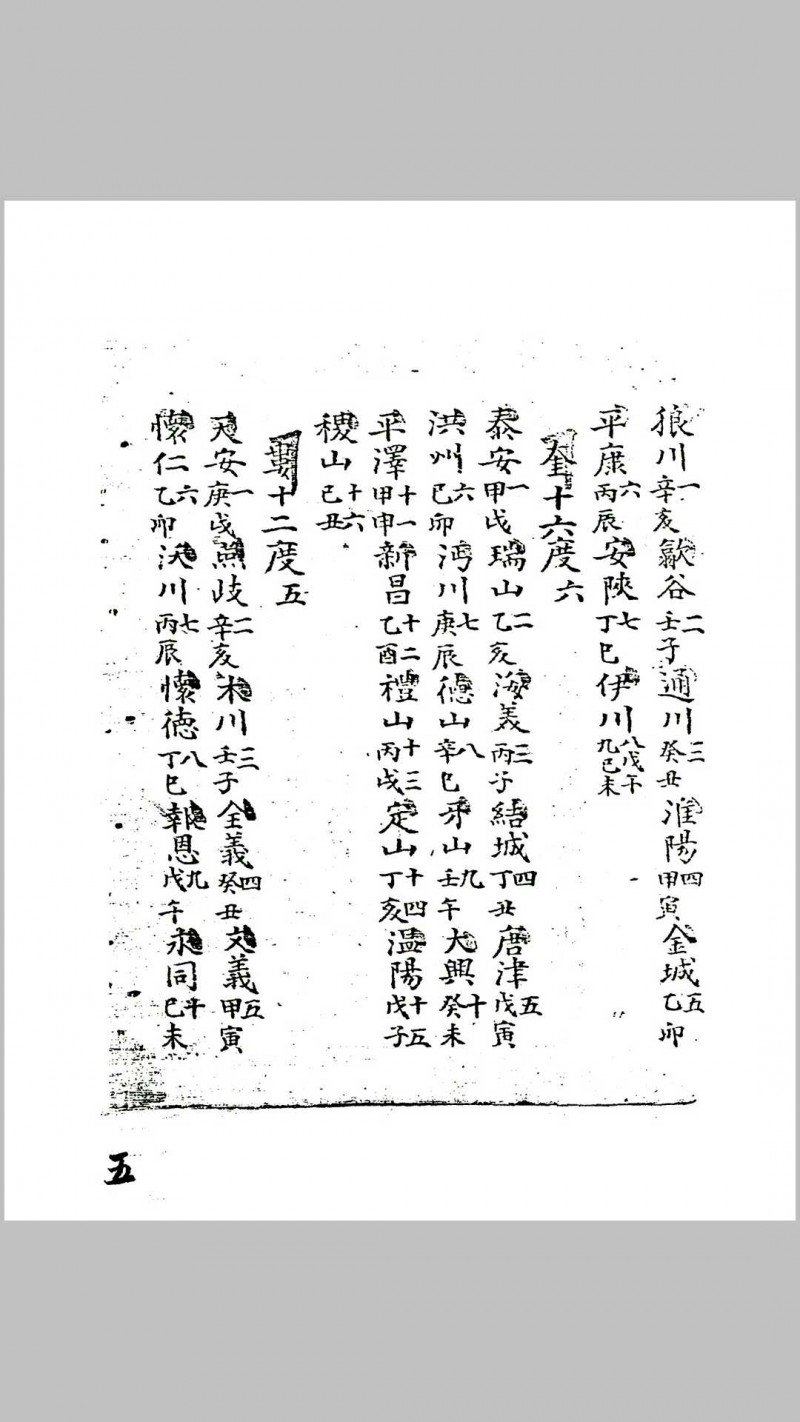 狼川一辛亥 歙谷二壬子 通川三癸丑 淮陽四甲寅 金城五乙卯
平康六丙辰 安陝七丁巳 伊川八戊午九己未
奎十六度六
泰安一甲戌 瑞山二乙亥 海美三丙子 結城四丁丑 唐津五戊寅
洪州六己卯 沔川七庚辰 德山八辛巳 牙山九壬午 大興十癸未
平澤十一甲申 新昌十二乙酉 禮山十三丙戌 定山十四丁亥 温陽十五戊子
稷山十六己丑
婁十二度五
天安一庚戌 燕歧二辛亥 木川三壬子 全義四癸丑 文義五甲寅
懷仁六乙卯 沃川七丙辰 懷德八丁巳 報恩九戊午 永同十己未
五